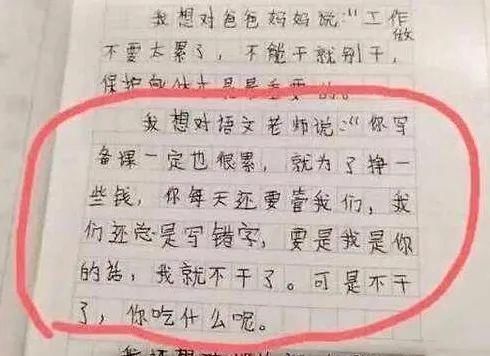 我想对爸爸妈妈说:“工作
做
不要太累了，不能干就别干，
保护身体才是最重要的。
我想对语文老师说:“你写
备课一定也很累，就为了挣一
些钱，你每天还要管我们，我
们还总是写错字，要是我是你
的话，我就不干了。可是不干
了，你吃什么呢。
我还想对